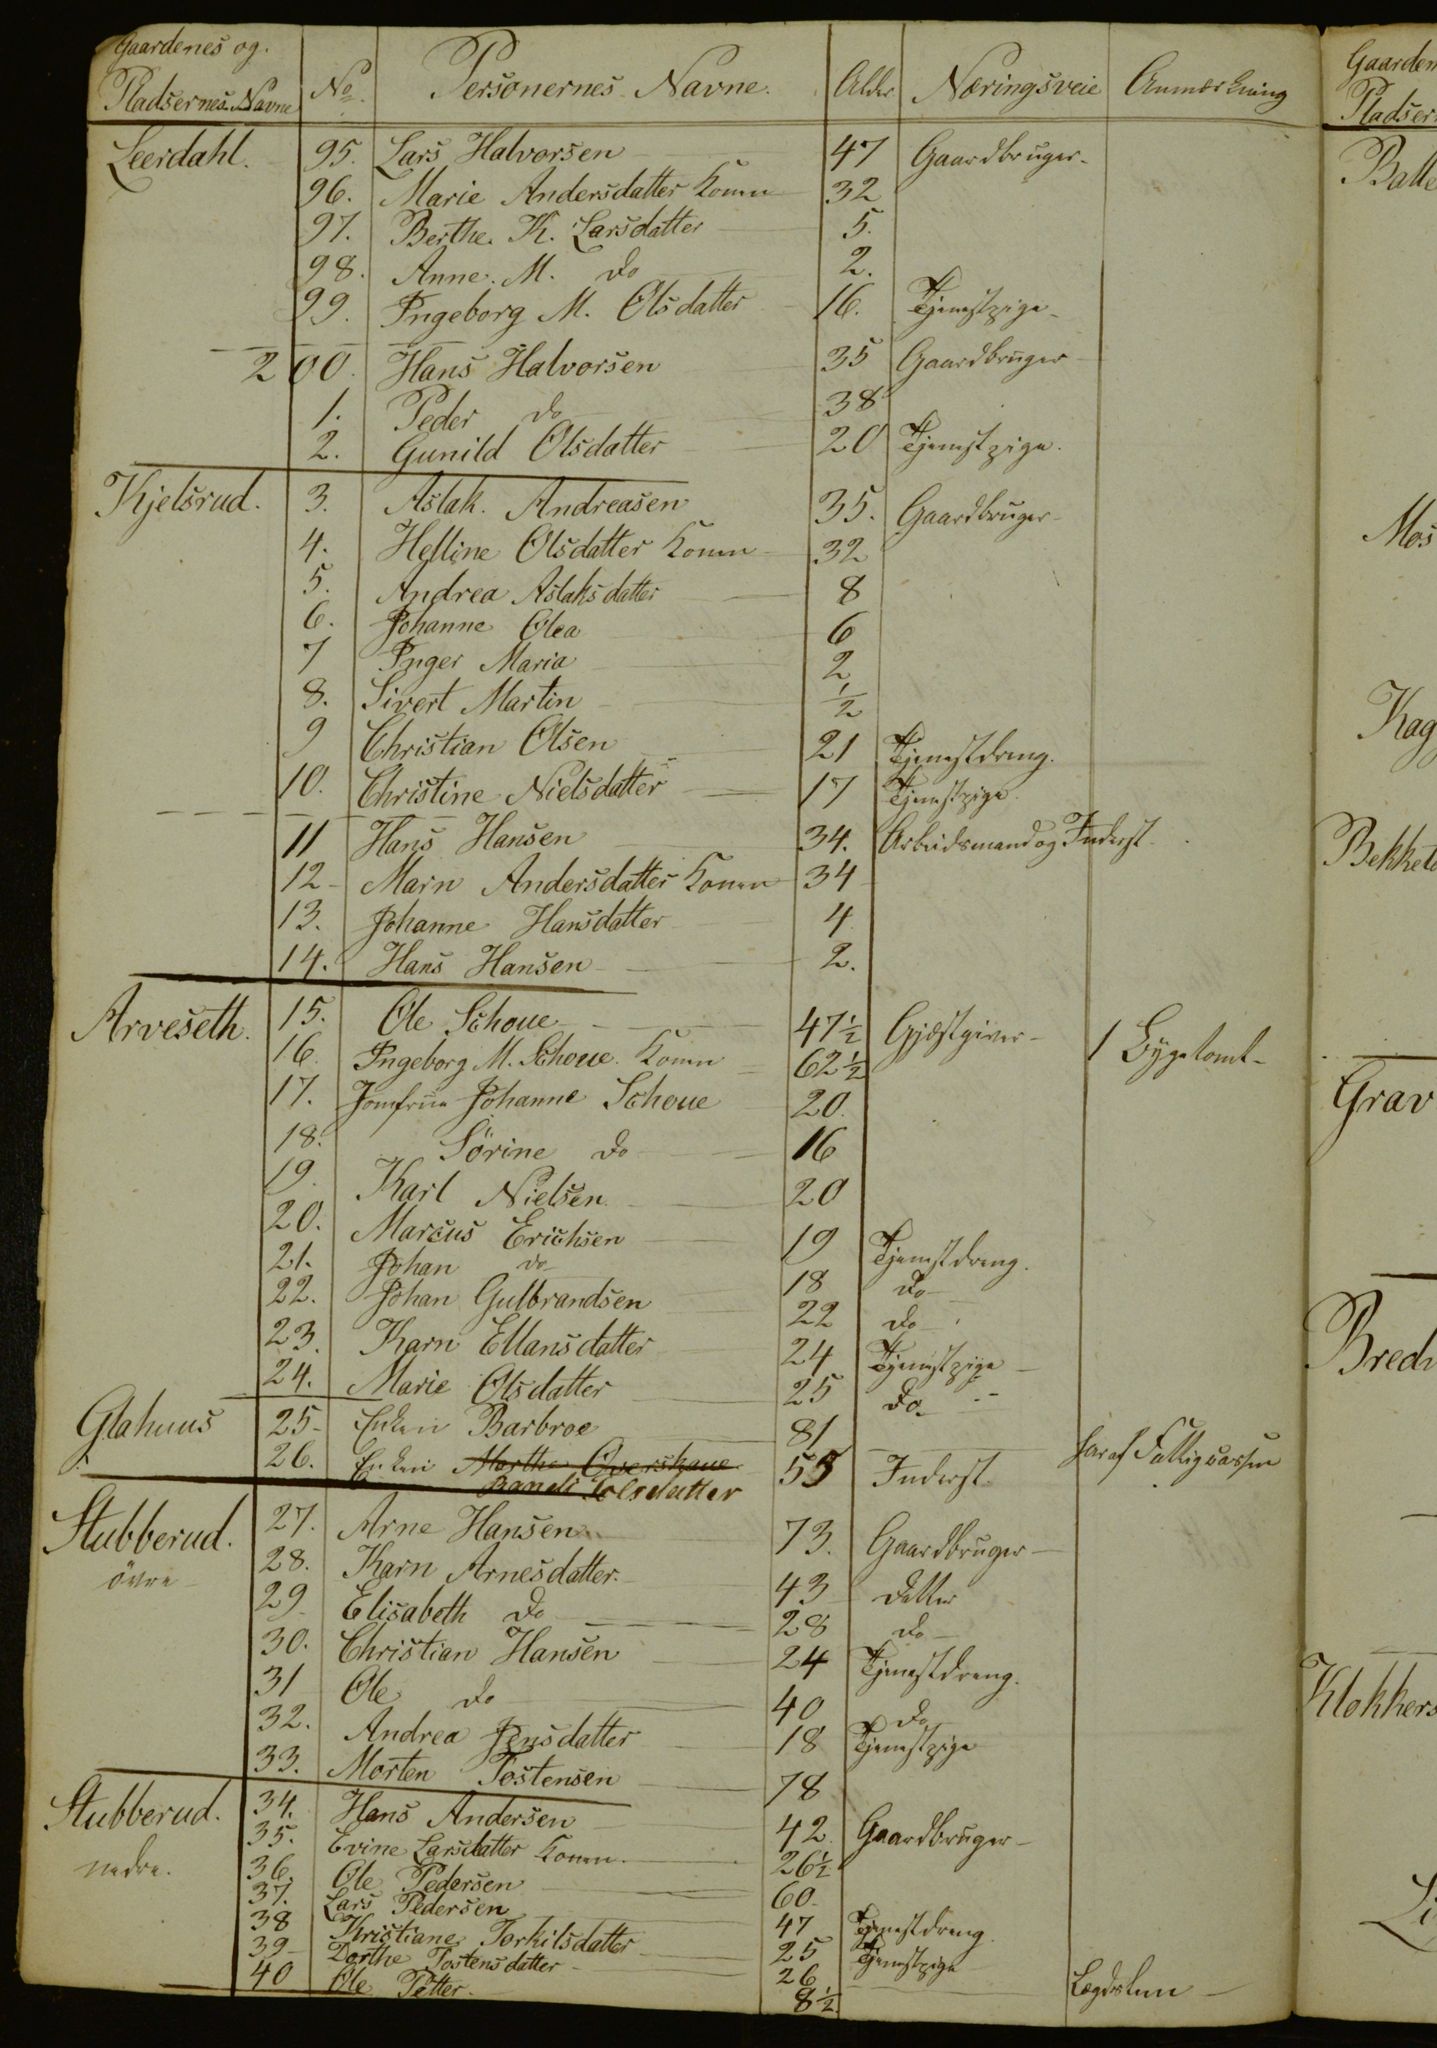 Gaardenes og
Pladsernes Navne No. Personernes Navne. Alder Næringsveie Anmærkning
Leerdahl. 95. Lars Halvorsen 47 Gaardbruger
96. Marie Andersdatter Konen 32
97. Berthe K. Larsdatter 5.
98. Anne M. do 2.
99. Ingeborg M. Olsdatter 16. Tjenestpige
200. Hans Halvorsen 35 Gaardbruger
1. Peder do 38
2. Gunild Olsdatter 20 Tjenestpige.
Kjelsrud. 3. Aslak Andreasen 35. Gaardbruger
4. Helline Olsdatter Konen 32
5. Andrea Aslaksdatter 8
6. Johanne Olea 6
7 Inger Maria 2
8. Sivert Martin ½
9 Christian Olsen 21 Tjenestdreng.
10. Christine Nielsdatter 17 Tjenestpige.
11 Hans Hansen 34. Arbeidsmand og Inderst
12 Marn Andersdatter Konen 34
13. Johanne Hansdatter 4
14. Hans Hansen 2.
Arveseth. 15. Ole Schoue 47½ Gjæstgiver 1 Bygetomt
16. Ingeborg M. Schoue Konen 62½
17. Jomfrue Johanne Schoue 20.
18. Sörine do 16
19. Karl Nielsen 20
20. Marcus Erichsen 19 Tjenestdreng.
21. Johan do 18 do
22. Johan Gulbrandsen 22 do
23. Karn Ellansdatter 24 Tjenestpige
24. Marie Olsdatter 25 do
Glahuus 25 Enken Barbroe 81 har af Fattigcassen
26. Enken Marthe Overskoue 55 Inderst
Randi Tolsdatter
Stubberud. 27. Arne Hansen 73. Gaardbruger
övre 28. Karn Arnesdatter 43 datter
29 Elisabeth do 28 do
30. Christian Hansen 24 Tjenestdreng.
31 Ole do 40 do
32. Andrea Jensdatter 18 Tjenestpige
33. Morten Tostensen 78
Stubberud. 34. Hans Andersen 42 Gaardbruger
35. Evine Larsdatter Konen 26½
nedre. 36. Ole Pedersen 60
37. Lars Pedersen 47 Tjenestdreng
38 Kristiane Torkilsdatter 25 Tjenestpige
39 Dorthe Tostensdatter 26
40 Ole Petter 8½ Lægdslem
Gaarden
Pladser
Batte
Mos
Kag
Bekket
Grav
Bred
Klokkers
Li